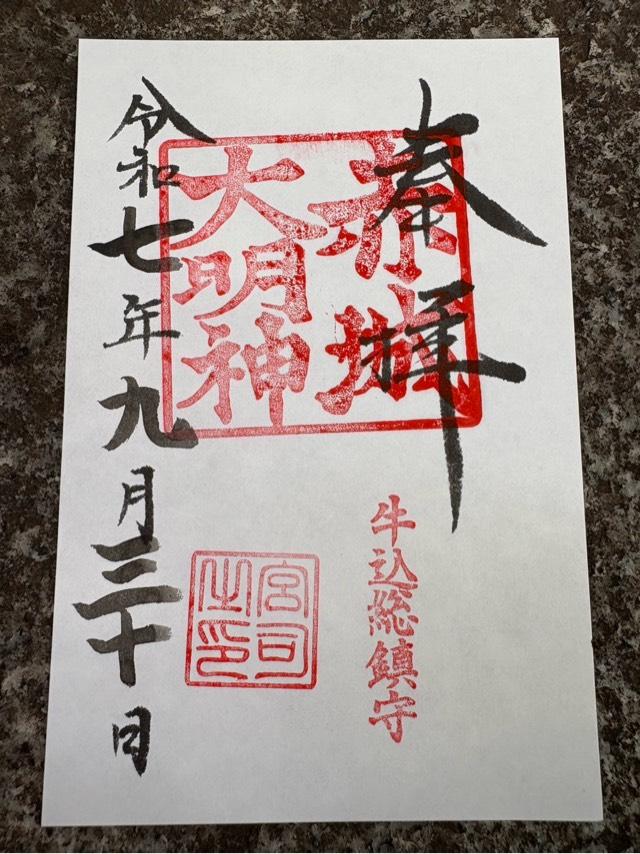 奉拝
赤城
大明神
牛込総鎮守
宮司
之印
令和七年九月三十日